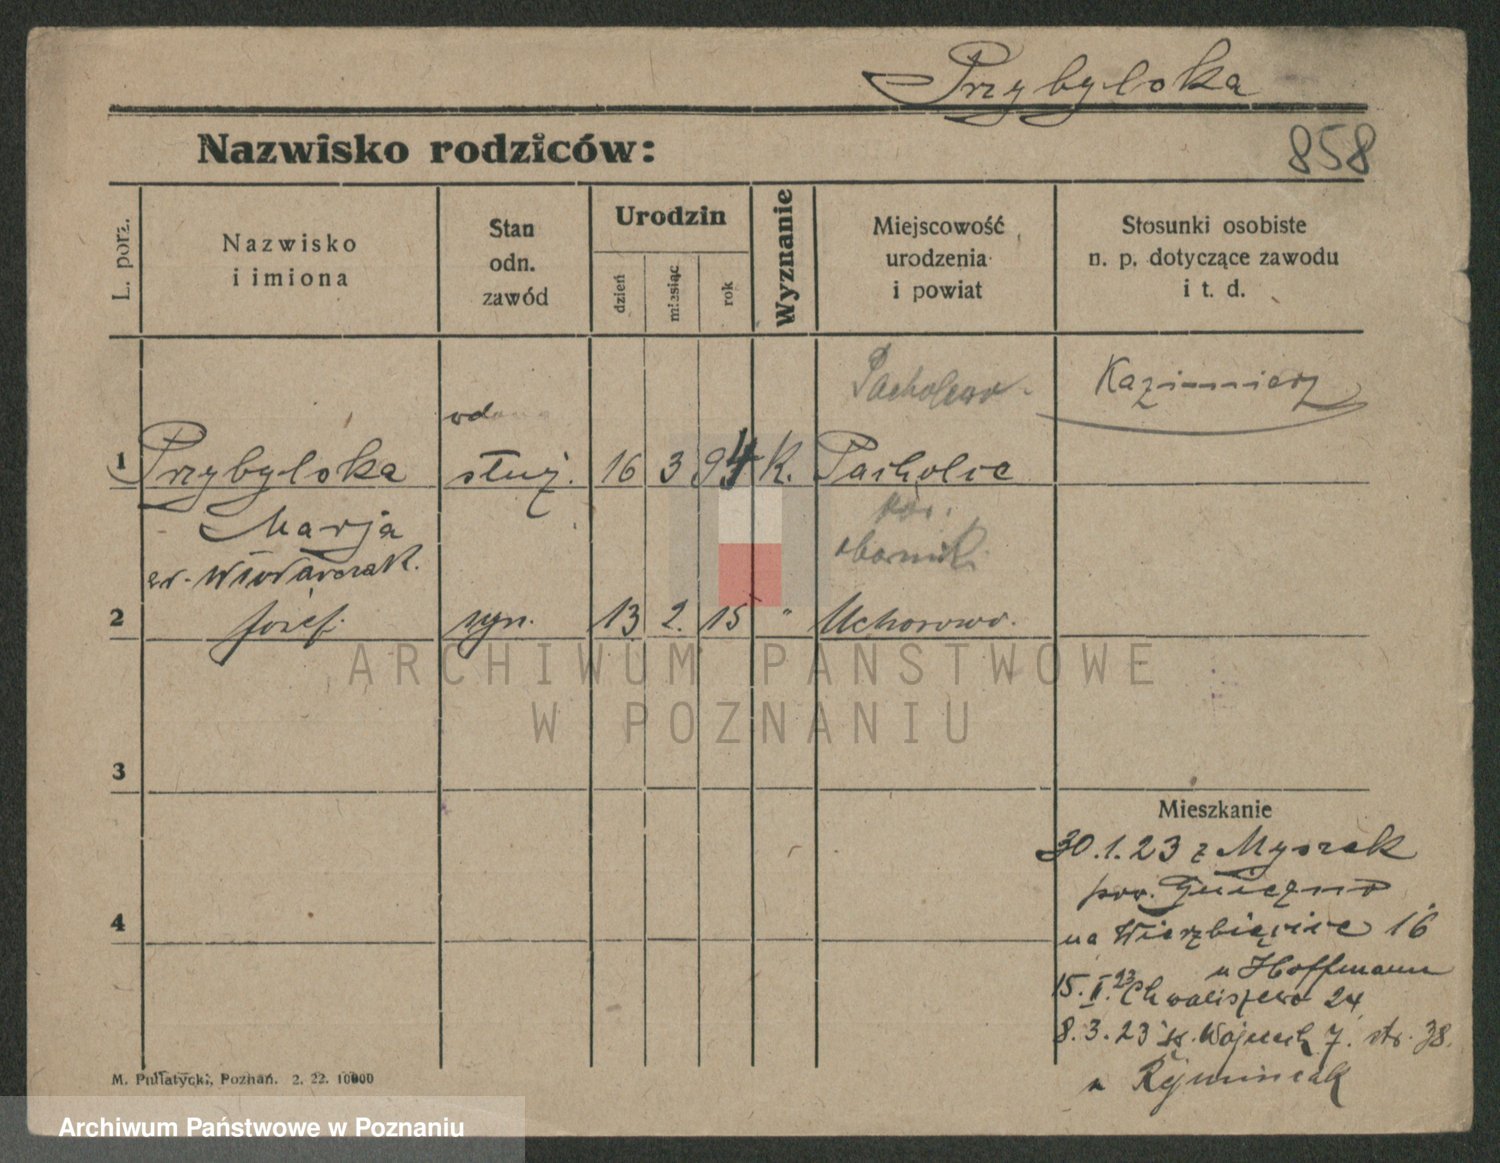 Przybylska
Nazwisko rodziców:
858
L. porz.
Nazwisko
i imiona
Stan
odn.
zawód
Urodzin
dzień
miesiąc
rok
Wyznanie
Miejscowość
urodzenia
i powiat
Stosunki osobiste
n. p. dotyczące zawodu
i t. d.
Pacholewo
Kazimierz
1 Przybylska służ. 16 3 94 K. Pacholce
Marja
pow.
obornik
2 Józef syn. 13 2. 15 " Uchorowo.
ARCHIWUM PAŃSTWOWE
W POZNANIU
3
4
Mieszkanie
30.1.23 z Myszek
pow. Gniezno
na Wierzbięcice 16
u Hoffmann
15.II.23 Chwaliszewo 24
8.3.23 św. Wojciech 7. str. 38.
u
M. Putiatycki, Poznań. 2. 22. 10000
Archiwum Państwowe w Poznaniu